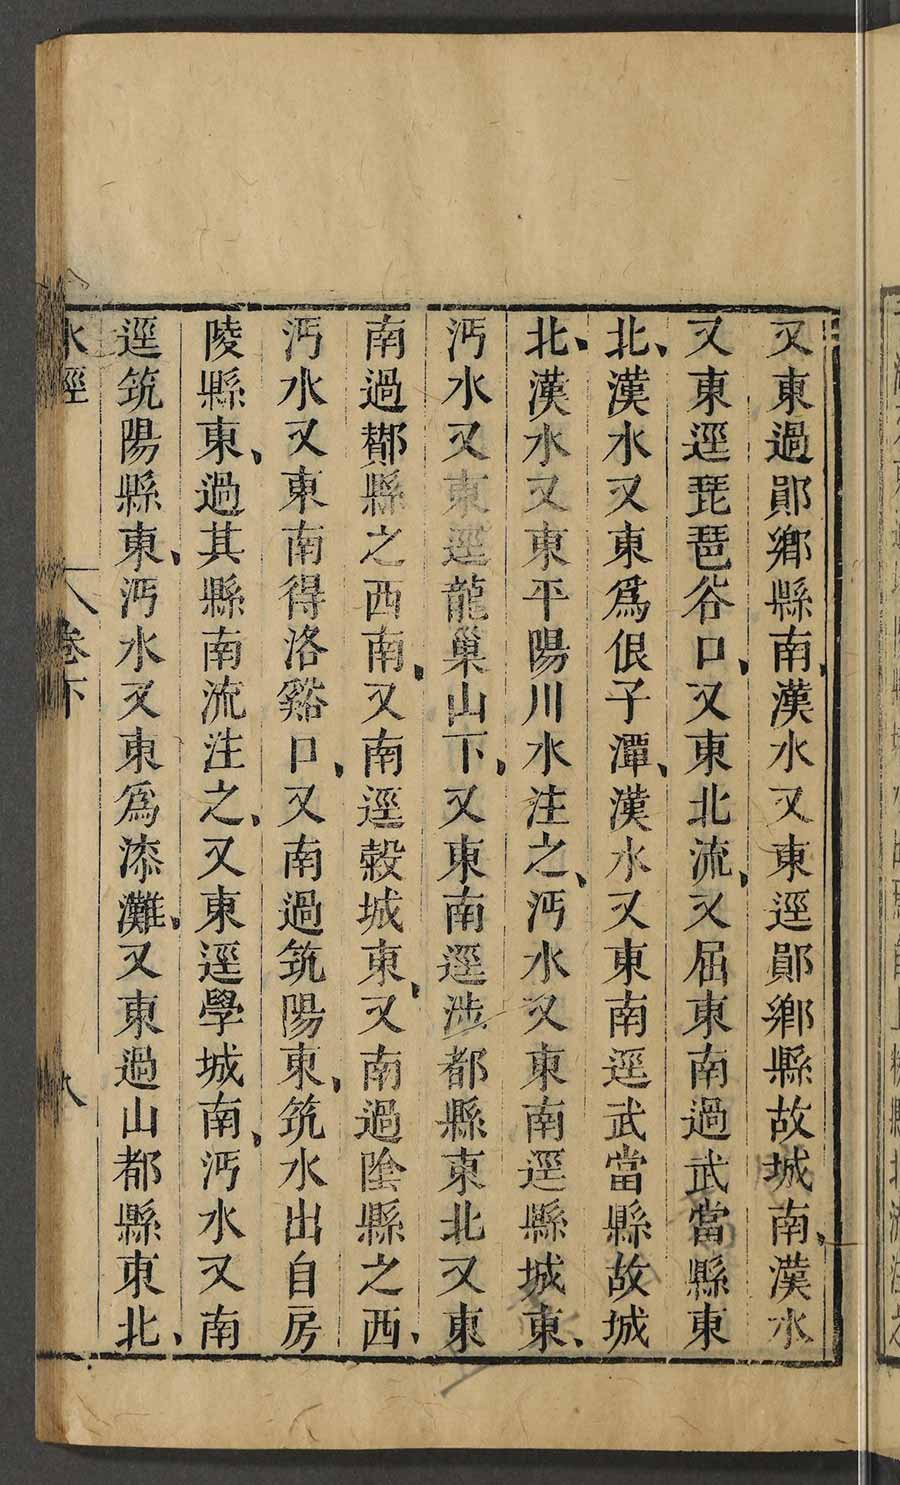 又東過鄖鄉縣南、漢水又東逕鄖鄉縣故城南、漢水
又東逕琵琶谷口、又東北流、又屈東南過武當縣東
北、漢水又東爲佷子潭、漢水又東南逕武當縣故城
北、漢水又東平陽川水注之、沔水又東南逕縣城東、
沔水又東逕龍巢山下、又東南逕涉都縣東北又東
南過酇縣之西南、又南逕穀城東、又南過陰縣之西、
沔水又東南得洛谿口、又南過筑陽東、筑水出自房
陵縣東、過其縣南流注之、又東逕學城南、沔水又南
逕筑陽縣東、沔水又東爲漆灘、又東過山都縣東北、
水經 卷下 八